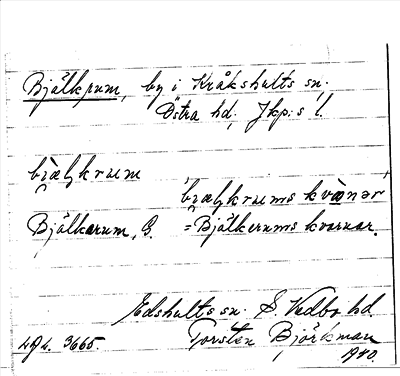 Bjälkrum, by i Kråkshults sn.
Östra hd, Jkp:s l.
bi̯æḷkrum
'bi̯æḷkrums kvànər'
Bjälkarum, G. =Bjälkerums kvarnar.
Edshults sn. S. Vedbo hd
Torsten Björkman
1910.